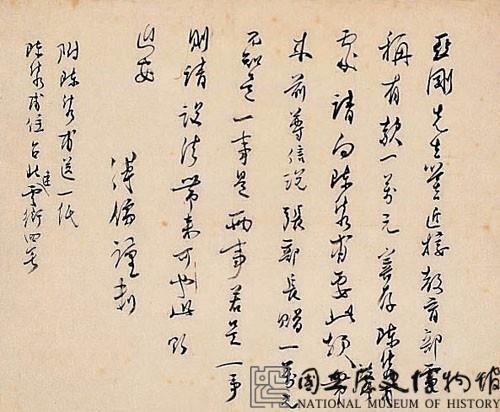 亞剛先生鑒近接教育部電
稱有款一萬元寄存陳
處請向陳　甫要此款
來前尊信説張部長贈一萬元
不知是一事是兩事若是一事
則請設法帶來可也此頌
近安
溥儒謹動
附陳　甫送一紙
陳　甫住台北　雲街四号
國立歷史博物館
NATIONAL MUSEUM OF HISTORY